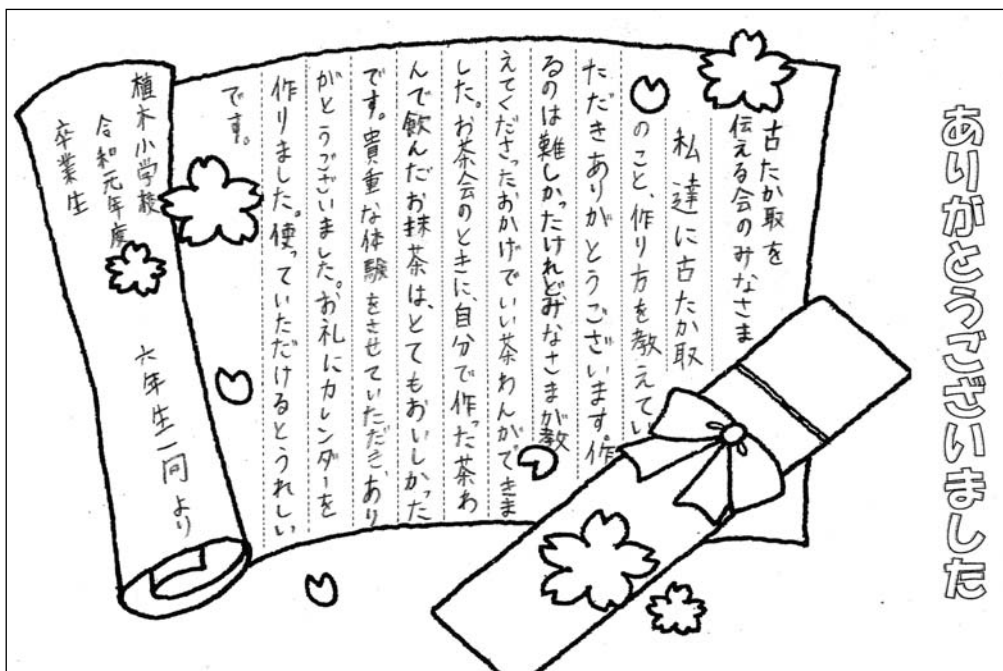 ありがとうございました
古たか取を
伝える会のみなさま
私達に古たか取
のこと、作り方を教えてい
ただきありがとうございます。作
るのは難しかったけれどみなさまが教
えてくださったおかげでいい茶わんができま
した。お茶会のときに、自分で作った茶わ
んで飲んだお抹茶は、とてもおいしかった
です。貴重な体験をさせていただき、あり
がとうございました。お礼にカレンダーを
作りました。使っていただけるとうれしい
です。
植木小学校
令和元年度
卒業生
六年生一同より